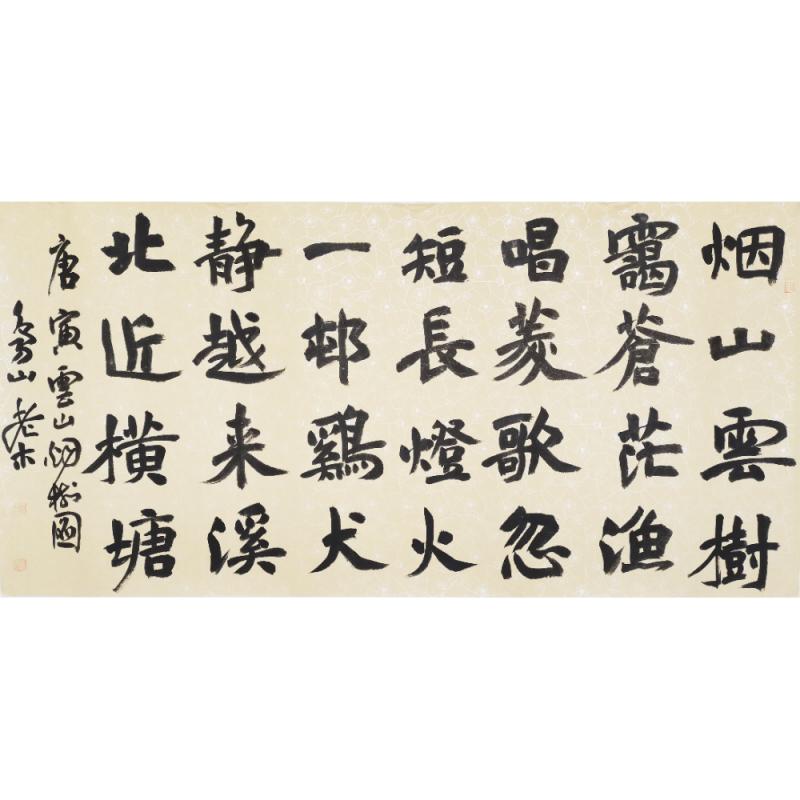 烟山雲樹
靄蒼茫漁
唱菱歌忽
短長燈火
一邨鷄犬
静越来溪
北近橫塘
唐寅雲山烟樹圖
山老木